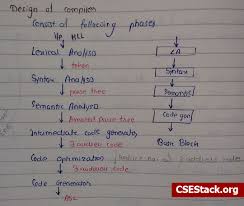 Design of compiler
Consist of following phases.
HLL
Lexical Analysis
LA
token
Syntax Analysis
Syntax
parse tree
Semantic Analysis
Semantic
Intermediate code generator
Code gen
3 address code
Basic Block
Code Optimization
3 address code
Code Generator
CSEStack.org